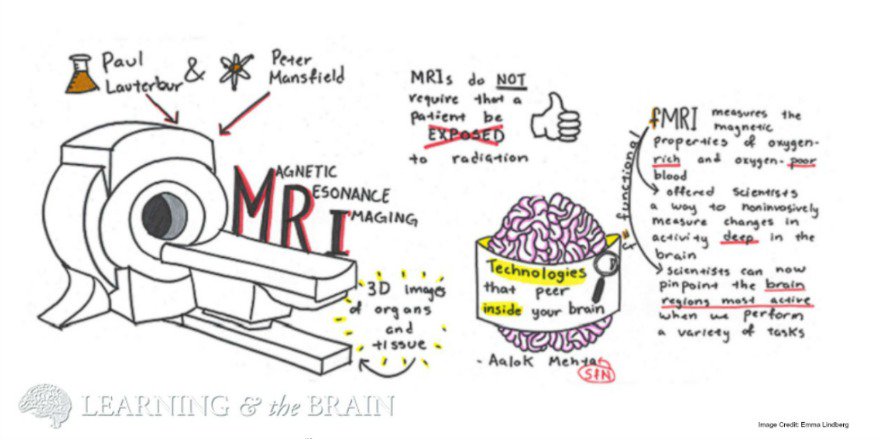 Paul
Lauterbur
&
Peter
Mansfield
MAGNETIC
RESONANCE
IMAGING
3D images
of organs
and
tissue
MRIs do NOT
require that a
patient be
EXPOSED
to radiation
Technologies
that peer
inside your brain
- Aalok Mehta
SfN
f = functional
fMRI measures the
magnetic
properties of oxygen-
rich and oxygen-poor
blood
offered scientists
a way to noninvasively
measure changes in
activity deep in the
brain
scientists can now
pinpoint the brain
regions most active
when we perform
a variety of tasks
LEARNING & the BRAIN
Image Credit: Emma Lindberg